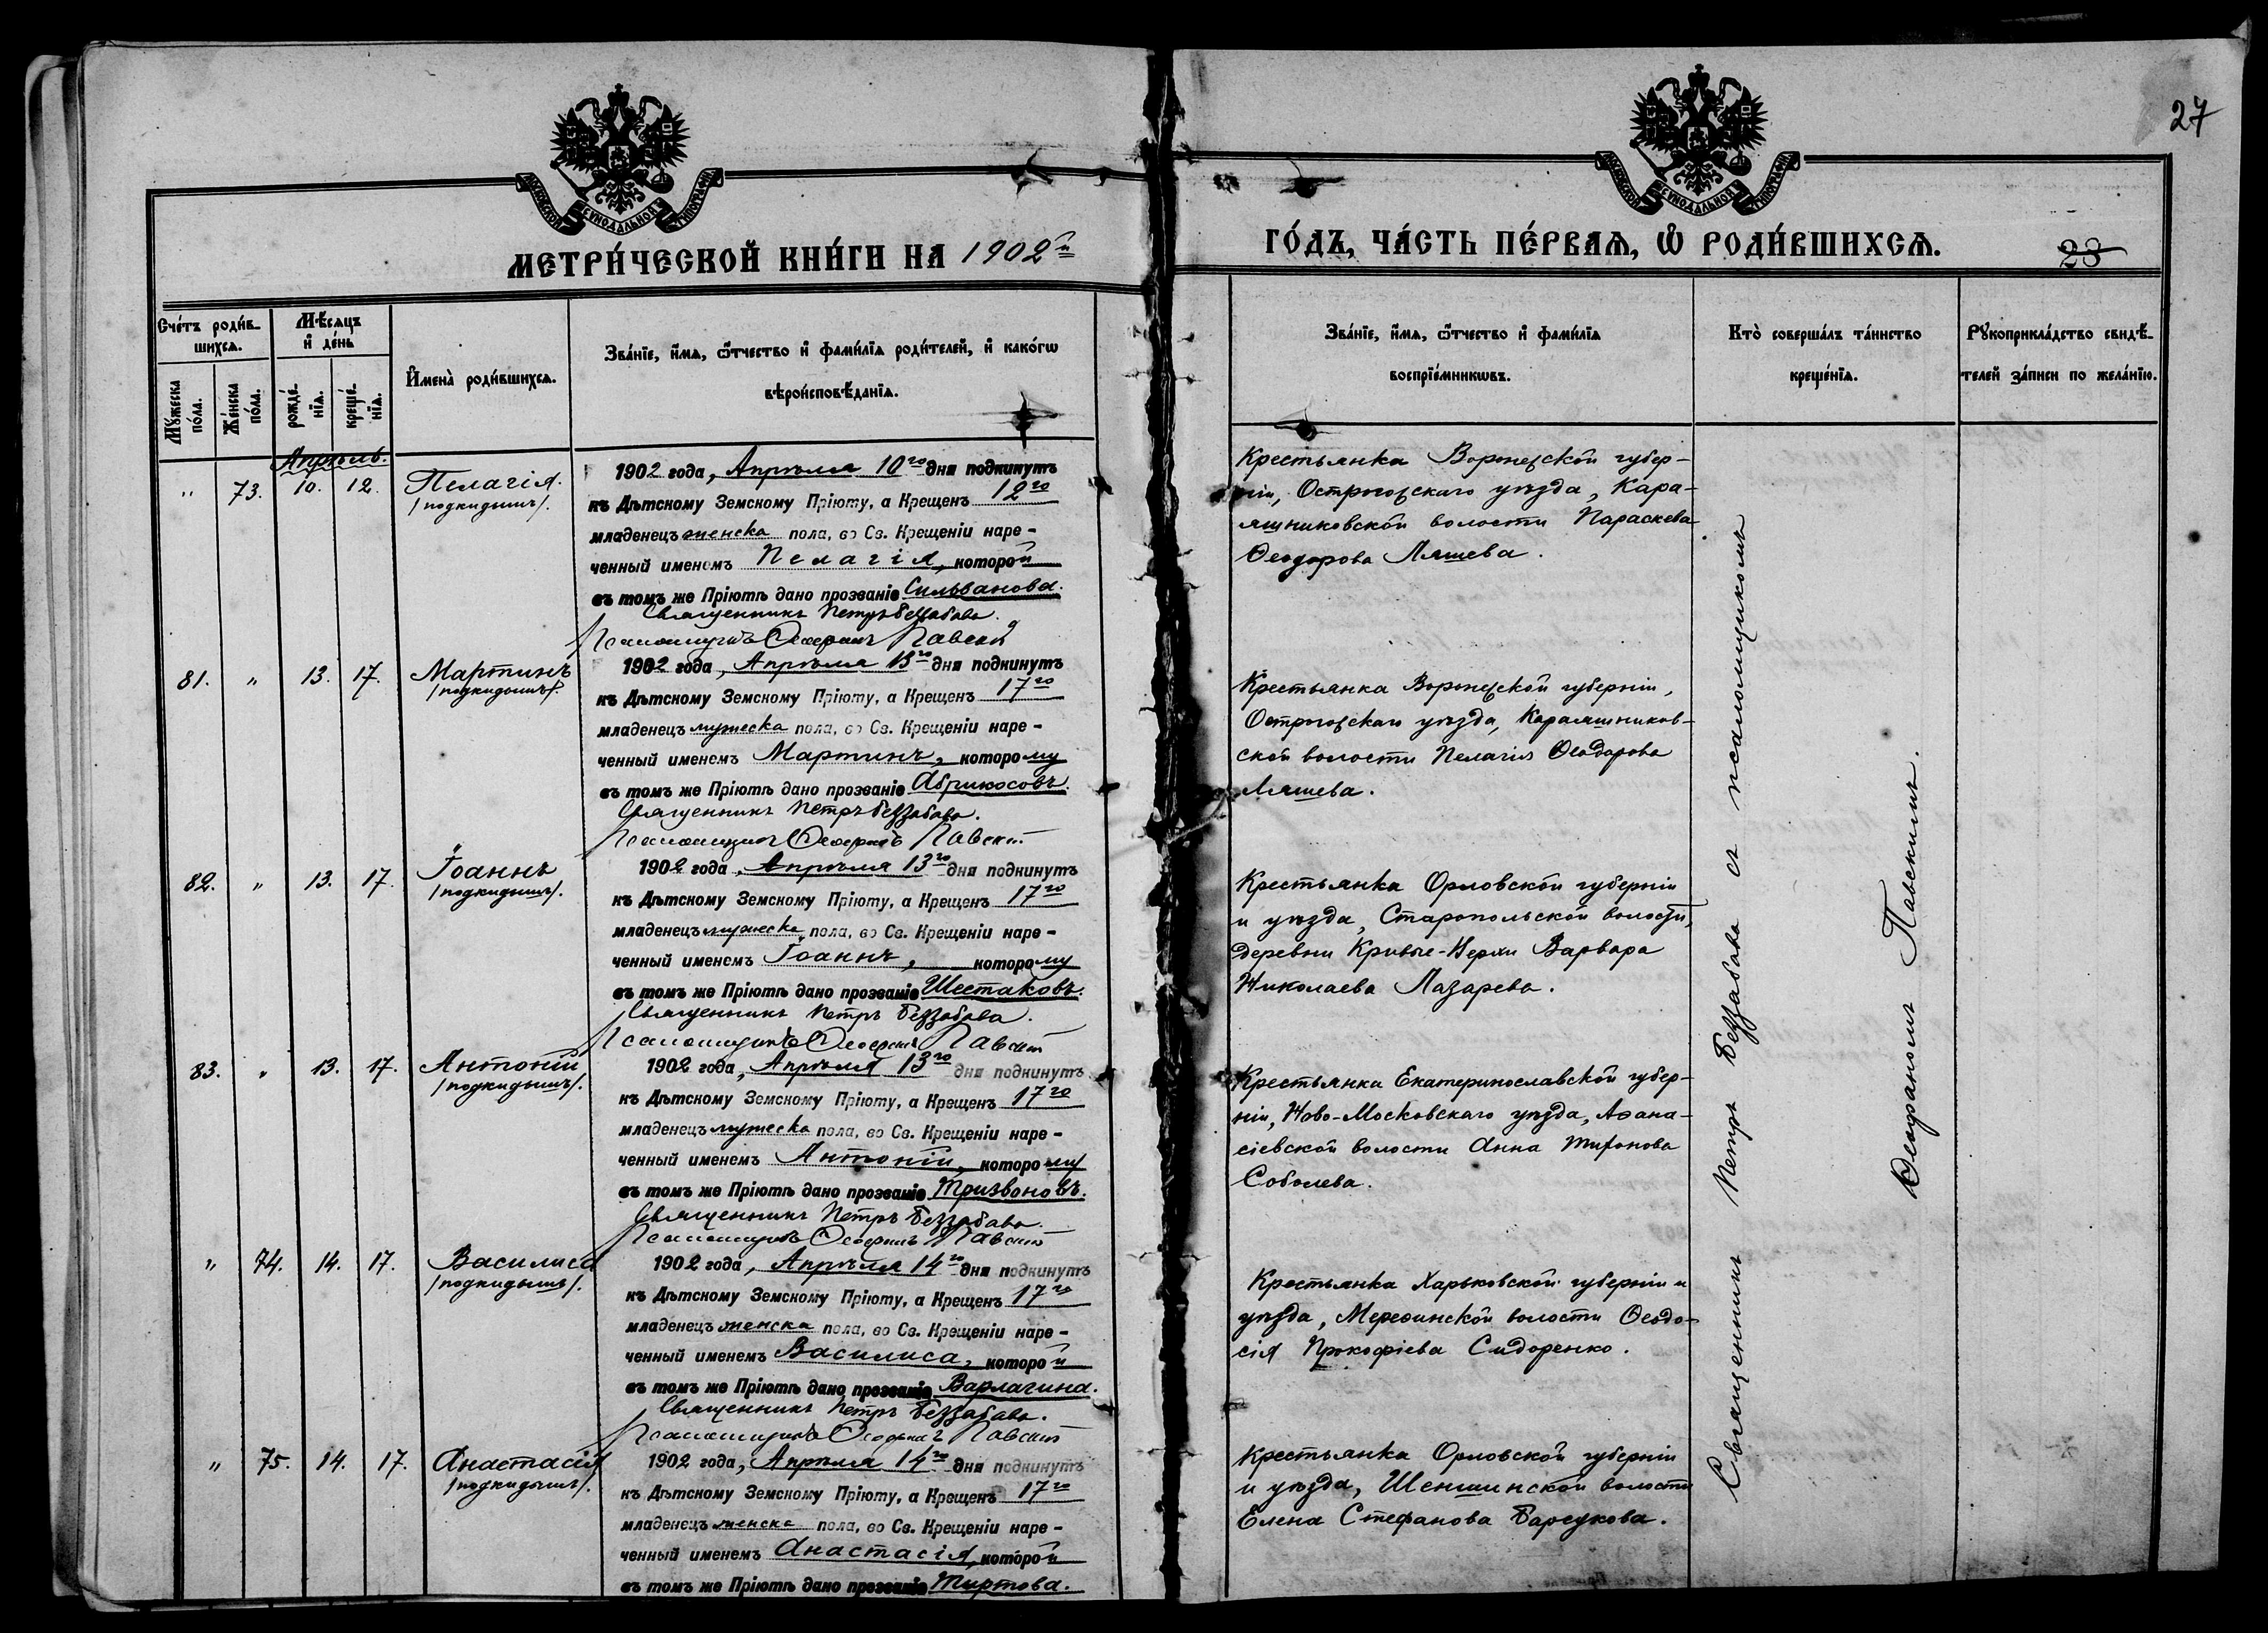 27
МОСКОВСКОЙ СѴНОДАЛЬНОЙ ТИПОГРАФІИ
МОСКОВСКОЙ СѴНОДАЛЬНОЙ ТИПОГРАФІИ
МЕТРИ́ЧЕСКОЙ КНИ́ГИ НА 1902й
ГО́ДЪ, ЧА́СТЬ ПЕ́РВАЯ, Ѽ РОДИ́ВШИХСЯ.
23
Сче́тъ роди́в-
шихся.
Мѣ́сяцъ
и҆ де́нь
Мꙋ́жеска по́ла.
Же́нска по́ла.
рожде́нїя.
креще́нїя.
И҆мена̀ роди́вшихся.
Зва́нїе, и҆́мя, ѻ҆́тчество и҆ фами́лїя роди́телей, и҆ како́гѡ
вѣроисповѣ́данїя.
Зва́нїе, и҆́мя, ѻ҆́тчество и҆ фами́лїя
воспрїе́мникѡвъ.
Кто̀ соверша́лъ та́инство
креще́нїя.
Рꙋкоприкла́дство свидѣ́-
телей за́писи по жела́нїю.
Апрѣль.
" 73. 10. 12. Пелагія
/подкидышъ/.
1902 года, Апрѣля 10го дня подкинутъ
къ Дѣтскому Земскому Пріюту, а Крещенъ 12го
младенецъ женска пола, во Св. Крещеніи наре-
ченный именемъ Пелагія, которой
въ томъ же Пріютѣ дано прозваніе Сильванова.
Священникъ Петръ Беззабава.
Псаломщикъ Ѳеофанъ Павскій
Крестьянка Воронежской губер-
ніи, Острогожскаго уѣзда, Кара-
яшниковской волости Параскева
Ѳеодорова Ляшева.
81. " 13. 17. Мартинъ
/подкидышъ/.
1902 года, Апрѣля 13го дня подкинутъ
къ Дѣтскому Земскому Пріюту, а Крещенъ 17го
младенецъ мужеска пола, во Св. Крещеніи наре-
ченный именемъ Мартинъ, которому
въ томъ же Пріютѣ дано прозваніе Абрикосовъ.
Священникъ Петръ Беззабава.
Псаломщикъ Ѳеофанъ Павскій
Крестьянка Воронежской губерніи,
Острогожскаго уѣзда, Караяшников-
ской волости Пелагія Ѳеодорова
Ляшева.
82. " 13. 17. Іоаннъ
/подкидышъ/.
1902 года, Апрѣля 13го дня подкинутъ
къ Дѣтскому Земскому Пріюту, а Крещенъ 17го
младенецъ мужеска пола, во Св. Крещеніи наре-
ченный именемъ Іоаннъ, которому
въ томъ же Пріютѣ дано прозваніе Шестаковъ.
Священникъ Петръ Беззабава.
Псаломщикъ Ѳеофанъ Павскій
Крестьянка Орловской губерніи
и уѣзда, Старопольской волости,
деревни Кривые-Верхи Варвара
Николаева Лазарева.
83. " 13. 17. Антоній
/подкидышъ/.
1902 года, Апрѣля 13го дня подкинутъ
къ Дѣтскому Земскому Пріюту, а Крещенъ 17го
младенецъ мужеска пола, во Св. Крещеніи наре-
ченный именемъ Антоній, которому
въ томъ же Пріютѣ дано прозваніе Тризвоновъ.
Священникъ Петръ Беззабава.
Псаломщикъ Ѳеофанъ Павскій
Крестьянка Екатеринославской губер-
ніи, Ново-Московскаго уѣзда, Аѳана-
сіевской волости Анна Тихонова
Соболева.
" 74. 14. 17. Василиса
/подкидышъ/.
1902 года, Апрѣля 14го дня подкинутъ
къ Дѣтскому Земскому Пріюту, а Крещенъ 17го
младенецъ женска пола, во Св. Крещеніи наре-
ченный именемъ Василиса, которой
въ томъ же Пріютѣ дано прозваніе Варлагина.
Священникъ Петръ Беззабава.
Псаломщикъ Ѳеофанъ Павскій
Крестьянка Харьковской губерніи и
уѣзда, Мереѳинской волости Ѳеодо-
сія Прокофіева Сидоренко.
" 75. 14. 17. Анастасія
/подкидышъ/.
1902 года, Апрѣля 14го дня подкинутъ
къ Дѣтскому Земскому Пріюту, а Крещенъ 17го
младенецъ женска пола, во Св. Крещеніи наре-
ченный именемъ Анастасія, которой
въ томъ же Пріютѣ дано прозваніе Тиртова.
Крестьянка Орловской губерніи
и уѣзда, Шеншинской волости
Елена Стефанова Барсукова.
Священникъ Петръ Беззабава съ псаломщикомъ
Ѳеофаномъ Павскимъ.